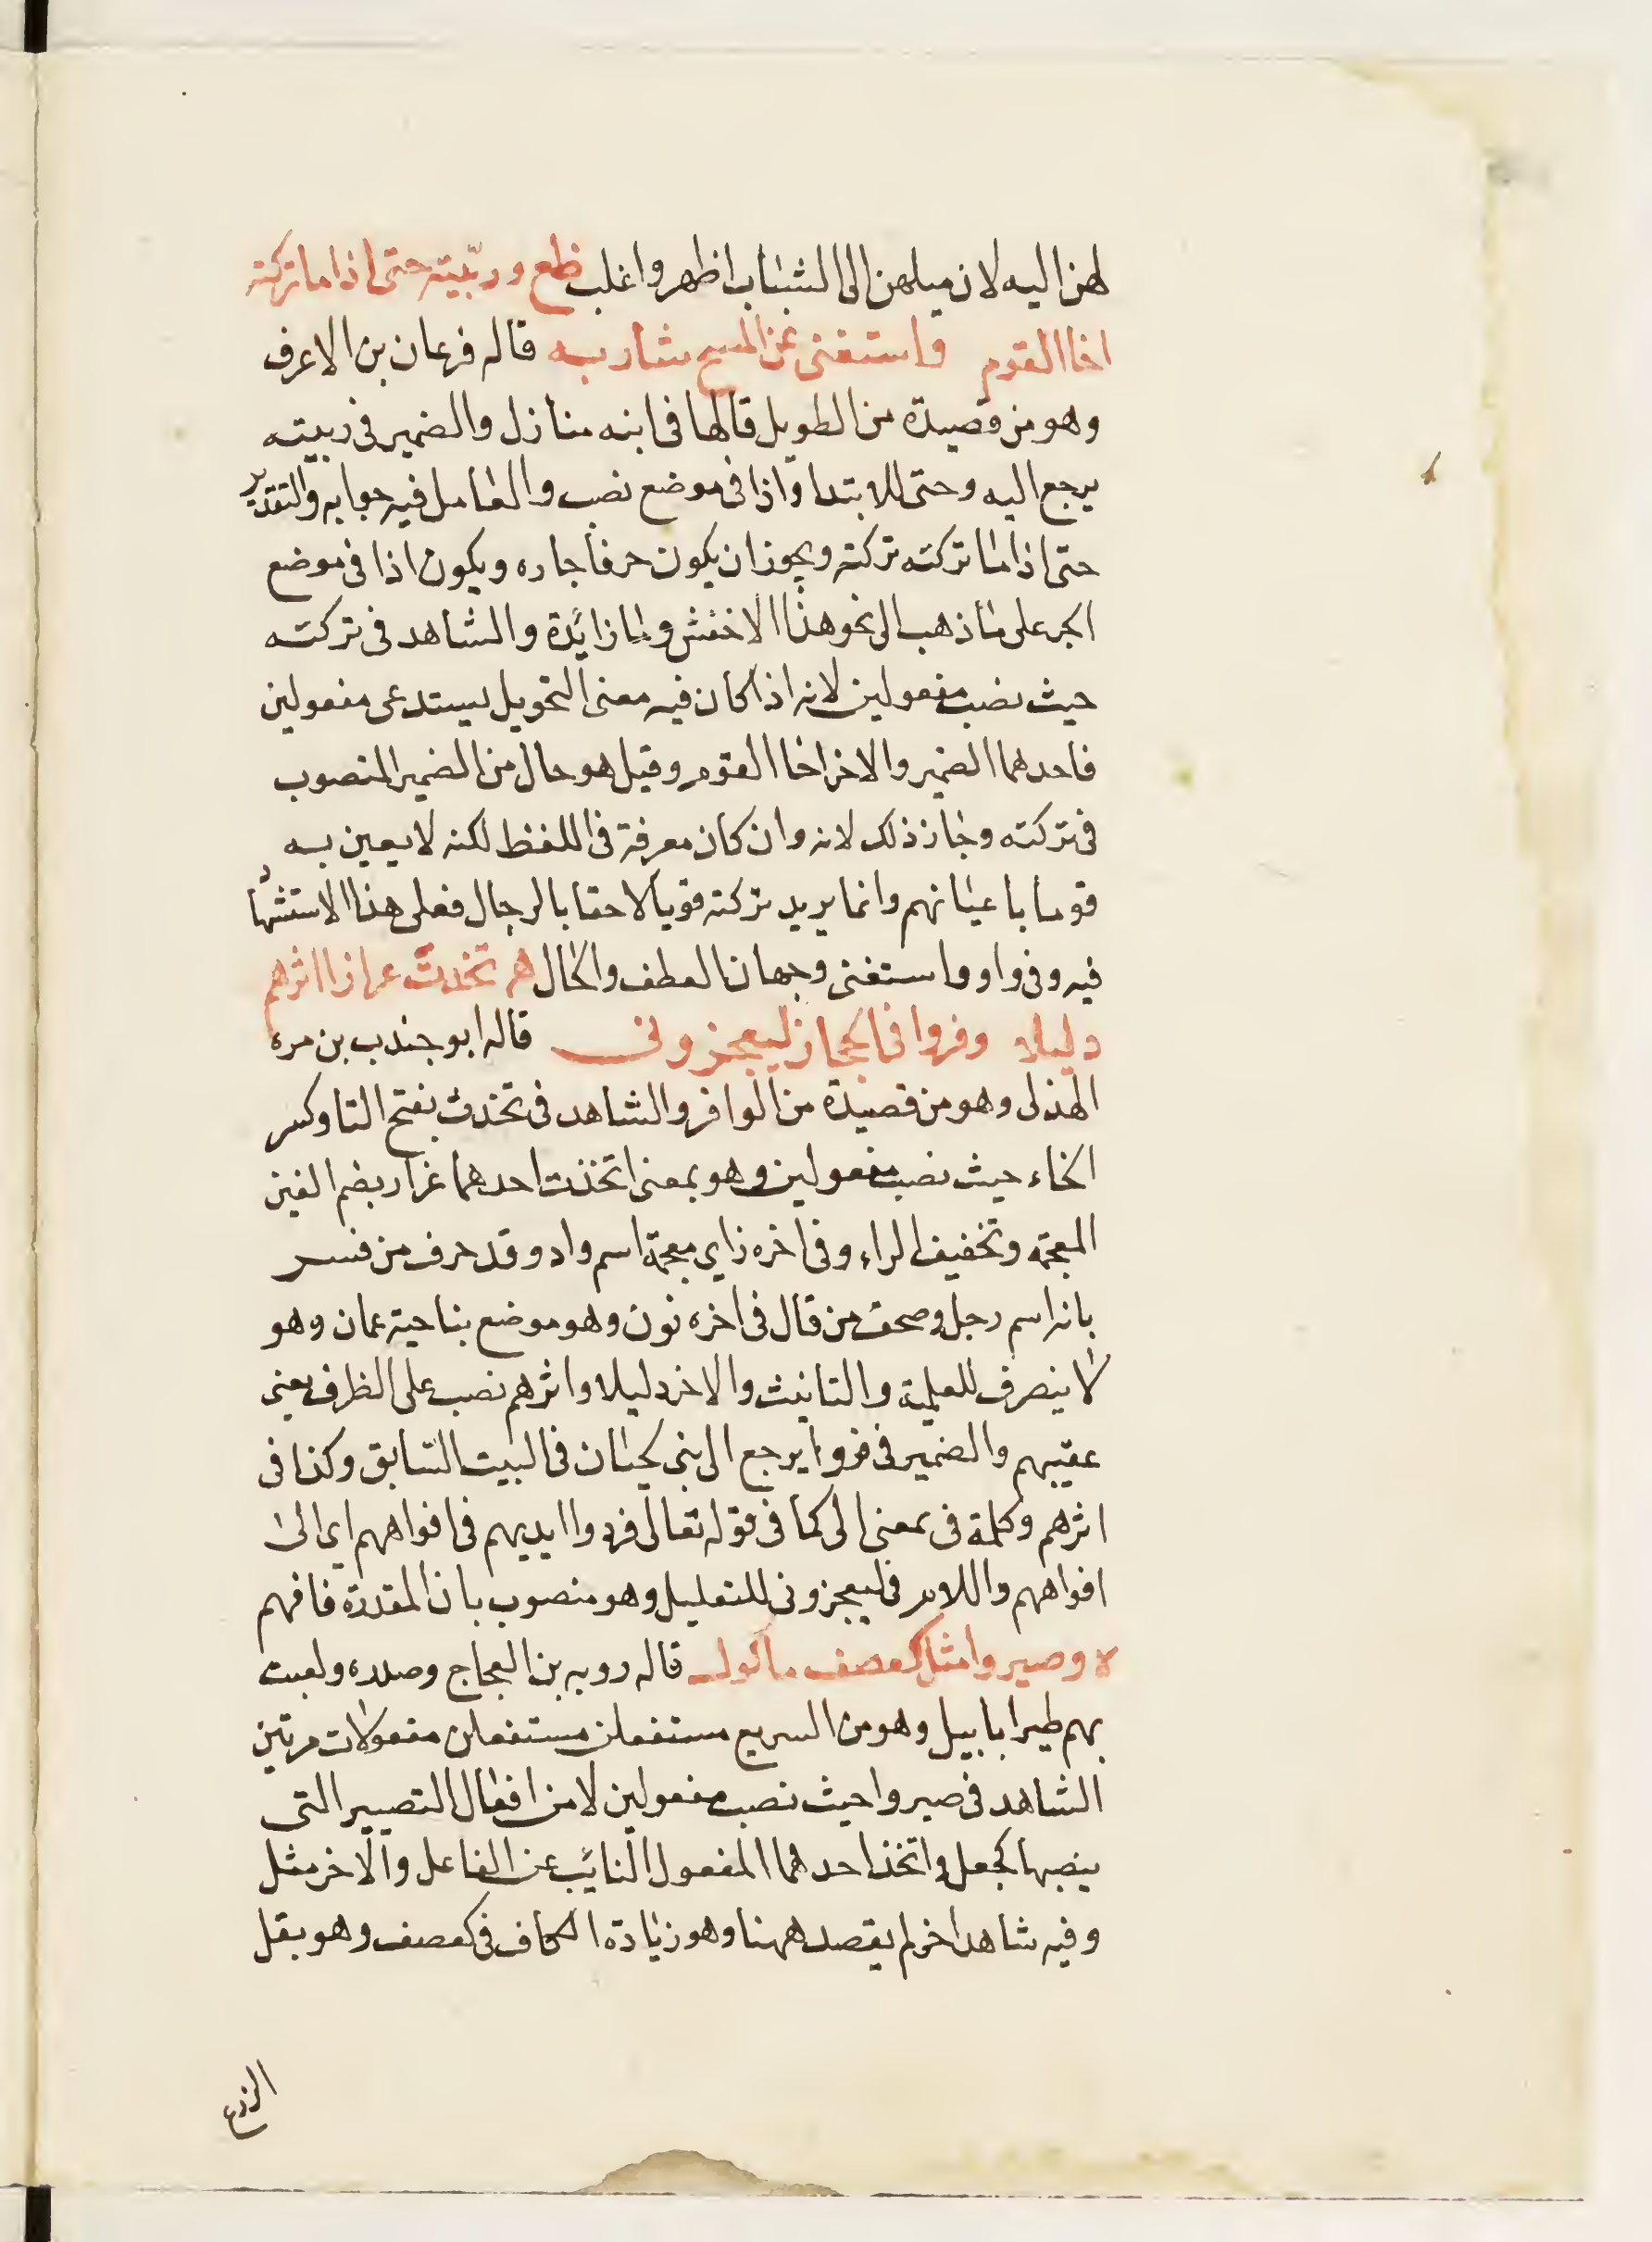 لهن اليه لان ميلهن الى الشباب اظهر واغلب ظع وربّيته حتى اذا ما تركته
اخا القوم واستغنى عن المسح شاربه قاله فرعان بن الاعرف
وهو من قصيدة من الطويل قالها في ابنه منازل والضمير في ربيته
يرجع اليه وحتى للابتدا واذا في موضع نصب والعامل فيه جوابه والتقدير
حتى اذا ما تركته تركته ويجوز ان يكون حرفا جاره ويكون اذا في موضع
الجر على ما ذهب الى نحو هذا الاخفش وما زائدة والشاهد في تركته
حيث نصب مفعولين لانه اذا كان فيه معنى التحويل يستدعى مفعولين
فاحدهما الضمير والاخر اخا القوم وقيل هو حال من الضمير المنصوب
في تركته وجاز ذلك لانه وان كان معرفة في اللفظ لكنه لا يعين به
قوما باعيانهم وانما يريد تركته قويا لاحقا بالرجال فعلى هذا الاستشهاد
فيه وفي واو واستغنى وجهان العطف والحال هر تخذت غراز اثرهم
دليلا وفروا في الحجاز ليعجزوني قاله ابو جندب بن مره
الهذلى وهو من قصيدة من الوافر والشاهد في تخذت بفتح التا وكسر
الخاء حيث نصب مفعولين وهو بمعنى اتخذت احدهما غراز بضم الغين
المعجمة وتخفيف الراء وفي اخره زاي معجمة اسم واد وقد حرف من فسر
بانه اسم رجل وصحف من قال في اخره نون وهو موضع بناحية عمان وهو
لا ينصرف للعلمية والتانيث والاخر دليلا واثرهم نصب على الظرف يعنى
عقيبهم والضمير في فروا يرجع الى بنى لحيان في البيت السابق وكذا في
اثرهم وكلمة في بمعنى الى كما في قوله تعالى فردوا ايديهم في افواههم اى الى
افواههم واللام في ليعجزوني للتعليل وهو منصوب بان المقدرة فافهم
ه وصيروا مثل كعصف ماكول قاله روبه بن العجاج وصدره ولعبت
بهم طير ابابيل وهو من السريع مستفعلن مستفعلن مفعولات مرتين
الشاهد في صيروا حيث نصب مفعولين لا من افعال التصيير التى
ينصبها كجعل واتخذ احدهما المفعول النايب عن الفاعل والاخر مثل
وفيه شاهد اخر لم يقصد ههنا وهو زيادة الكاف في كعصف وهو بقل
الزرع